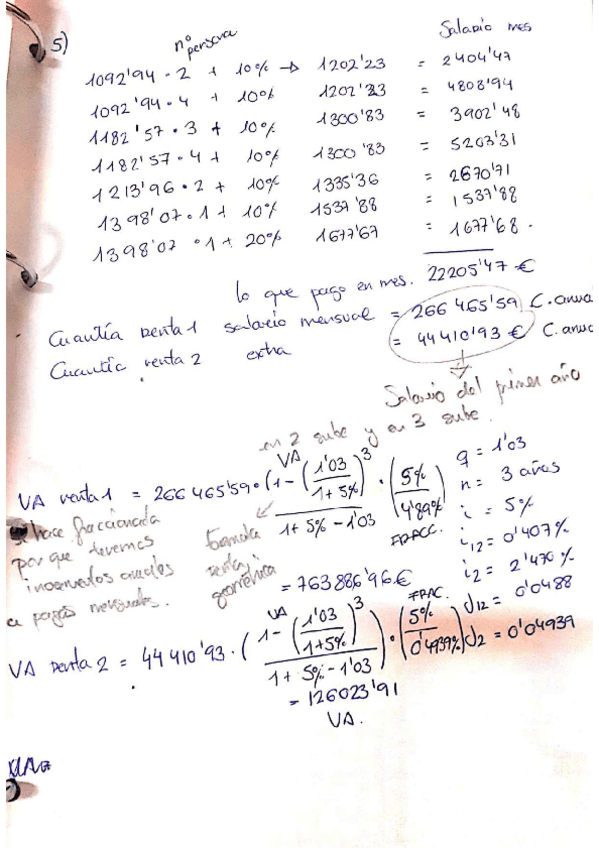 5)
nº persona
Salario mes
1092'94 • 2 + 10% → 1202'23 = 2404'47
1092'94 • 4 + 10% 1202'23 = 4808'94
1182'57 • 3 + 10% 1300'83 = 3902'48
1182'57 • 4 + 10% 1300'83 = 5203'31
1213'96 • 2 + 10% 1335'36 = 2670'71
1398'07 • 1 + 10% 1537'88 = 1537'88
1398'07 • 1 + 20% 1677'67 = 1677'68.
lo que pago en mes. 22205'47 €
Cuantía renta 1 salario mensual = 266 465'59 C. anua
Cuantía renta 2 extra = 44 410'93 € C. anua
Salario del primer año
en 2 sube y en 3 sube.
VA
VA renta 1 = 266 465'59 • (1 - (1'03 / 1 + 5%)^3 / 1 + 5% - 1'03 • (5% / 4'89%)
FRACC.
q = 1'03
n = 3 años
i = 5%
i12 = 0'407%
i2 = 2'470%
J12 = 0'0488
J2 = 0'04939
se hace fraccionada
porque tenemos
incrementos anuales
a pagos mensuales.
formula
renta
geométrica
= 763 886'96 €
VA
FRAC.
VA renta 2 = 44 410'93 • (1 - (1'03 / 1+5%)^3 / 1 + 5% - 1'03) • (5% / 0'4939%)
= 126023'91
VA.